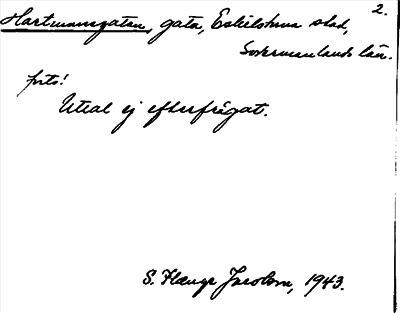 2.
Hartmansgatan, gata, Eskilstuna stad,
Södermanlands län.
forts!
Uttal ej efterfrågat.
S. Hauge Jacobson, 1943.